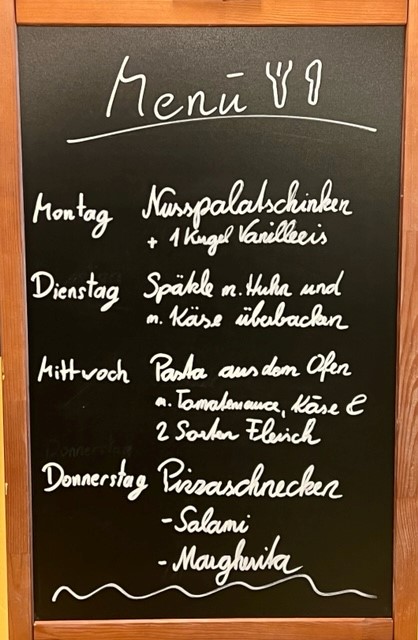 Menü
Montag Nusspalatschinken
+ 1 Kugel Vanilleeis
Dienstag Spätzle m. Huhn und
m. Käse überbacken
Mittwoch Pasta aus dem Ofen
m. Tomatensauce, Käse &
2 Sorten Fleisch
Donnerstag Pizzaschnecken
- Salami
- Margherita